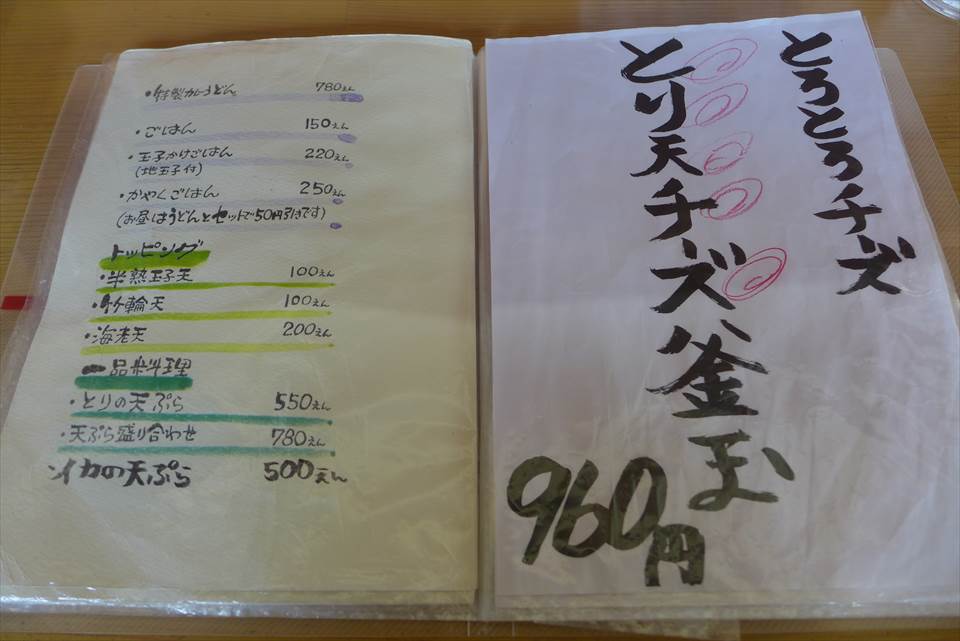 ・特製カレーうどん 780えん
・ごはん 150えん
・玉子かけごはん 220えん
(地玉子付)
・かやくごはん 250えん
(お昼はうどんとセットで50円引きです)
トッピング
・半熟玉子天 100えん
・竹輪天 100えん
・海老天 200えん
一品料理
・とりの天ぷら 550えん
・天ぷら盛り合わせ 780えん
・イカの天ぷら 500えん
とろとろチーズ
とり天チーズ釜玉
960円